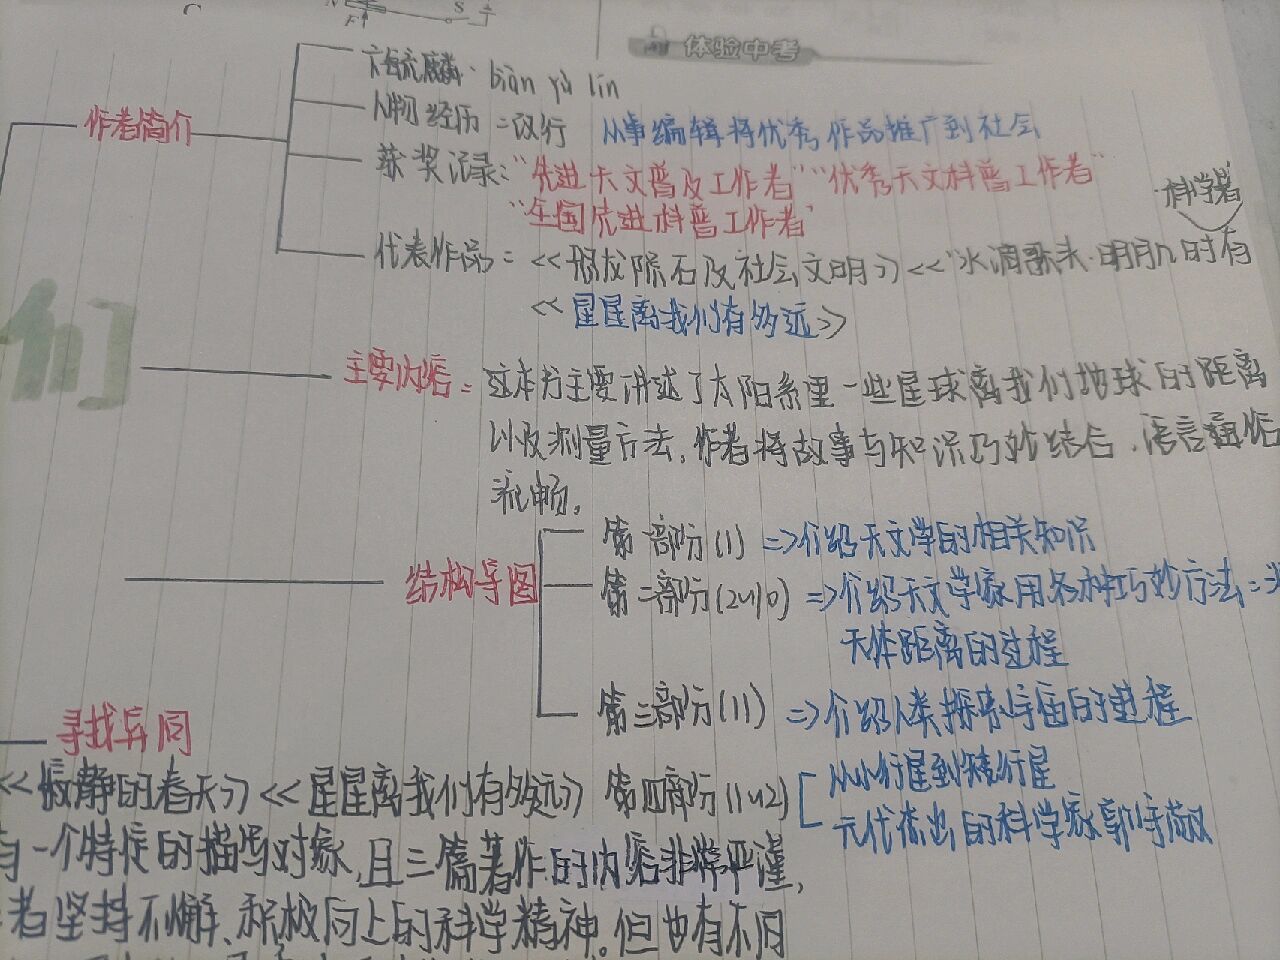 体验中考
卞毓麟. biàn yù lín
作者简介
人物经历: 改行 从事编辑将优秀作品推广到社会
获奖记录: "先进天文普及工作者" "优秀天文科普工作者"
"全国先进科普工作者"
科学著
代表作品: <<恐龙陨石及社会文明>> <<"水滴歌头·明月几时有
<<星星离我们有多远>>
们
主要内容: 这本书主要讲述了太阳系里一些星球离我们地球的距离
以及测量方法,作者将故事与知识巧妙结合,语言通俗
流畅。
第一部分(1) => 介绍天文学的相关知识
结构导图
第二部分(2~10) => 介绍天文学家用各种巧妙方法
天体距离的过程
第三部分(11) => 介绍人类探索宇宙的进程
寻找异同
<<寂静的春天>> <<星星离我们有多远>>
第四部分(1~2)
从小行星到矮行星
元代杰出的科学家郭守敬
有一个特定的描写对象,且三篇著作的内容非常严谨,
者坚持不懈、积极向上的科学精神。但也有不同